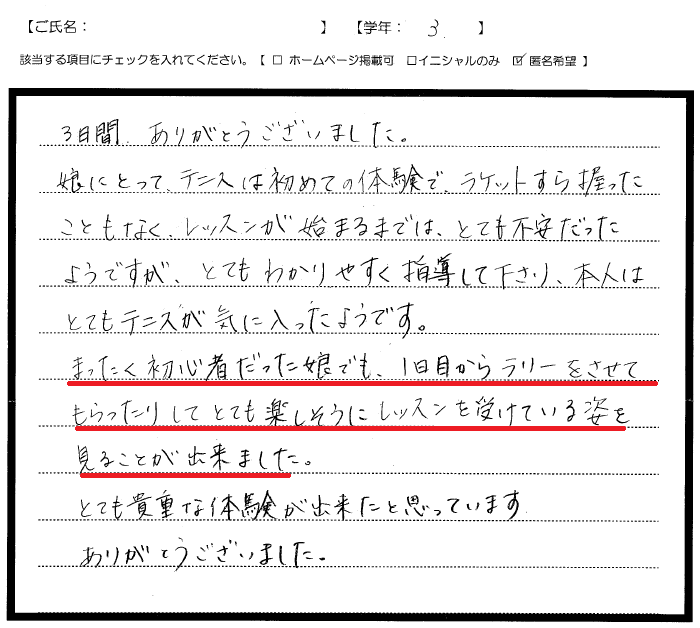 【ご氏名： 】 【学年： 3. 】
該当する項目にチェックを入れてください。【 □ ホームページ掲載可 □イニシャルのみ ☑ 匿名希望 】
3日間、ありがとうございました。
娘にとって、テニスは初めての体験で、ラケットすら握った
こともなく、レッスンが始まるまでは、とても不安だった
ようですが、とてもわかりやすく指導して下さり、本人は
とてもテニスが気に入ったようです。
まったく初心者だった娘でも、1日目からラリーをさせて
もらったりしてとても楽しそうにレッスンを受けている姿を
見ることが出来ました。
とても貴重な体験が出来たと思っています
ありがとうございました。